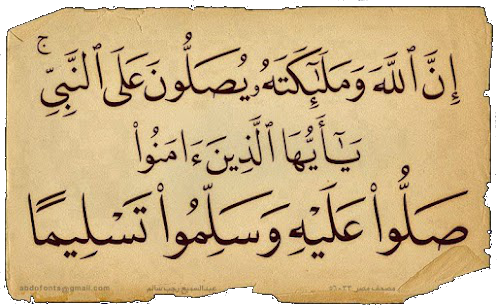 إِنَّ ٱللَّهَ وَمَلَٰٓئِكَتَهُۥ يُصَلُّونَ عَلَى ٱلنَّبِىِّ ۚ
يَٰٓأَيُّهَا ٱلَّذِينَ ءَامَنُوا۟
صَلُّوا۟ عَلَيْهِ وَسَلِّمُوا۟ تَسْلِيمًا
abdofonts@gmail.com عبدالسميع رجب سالم